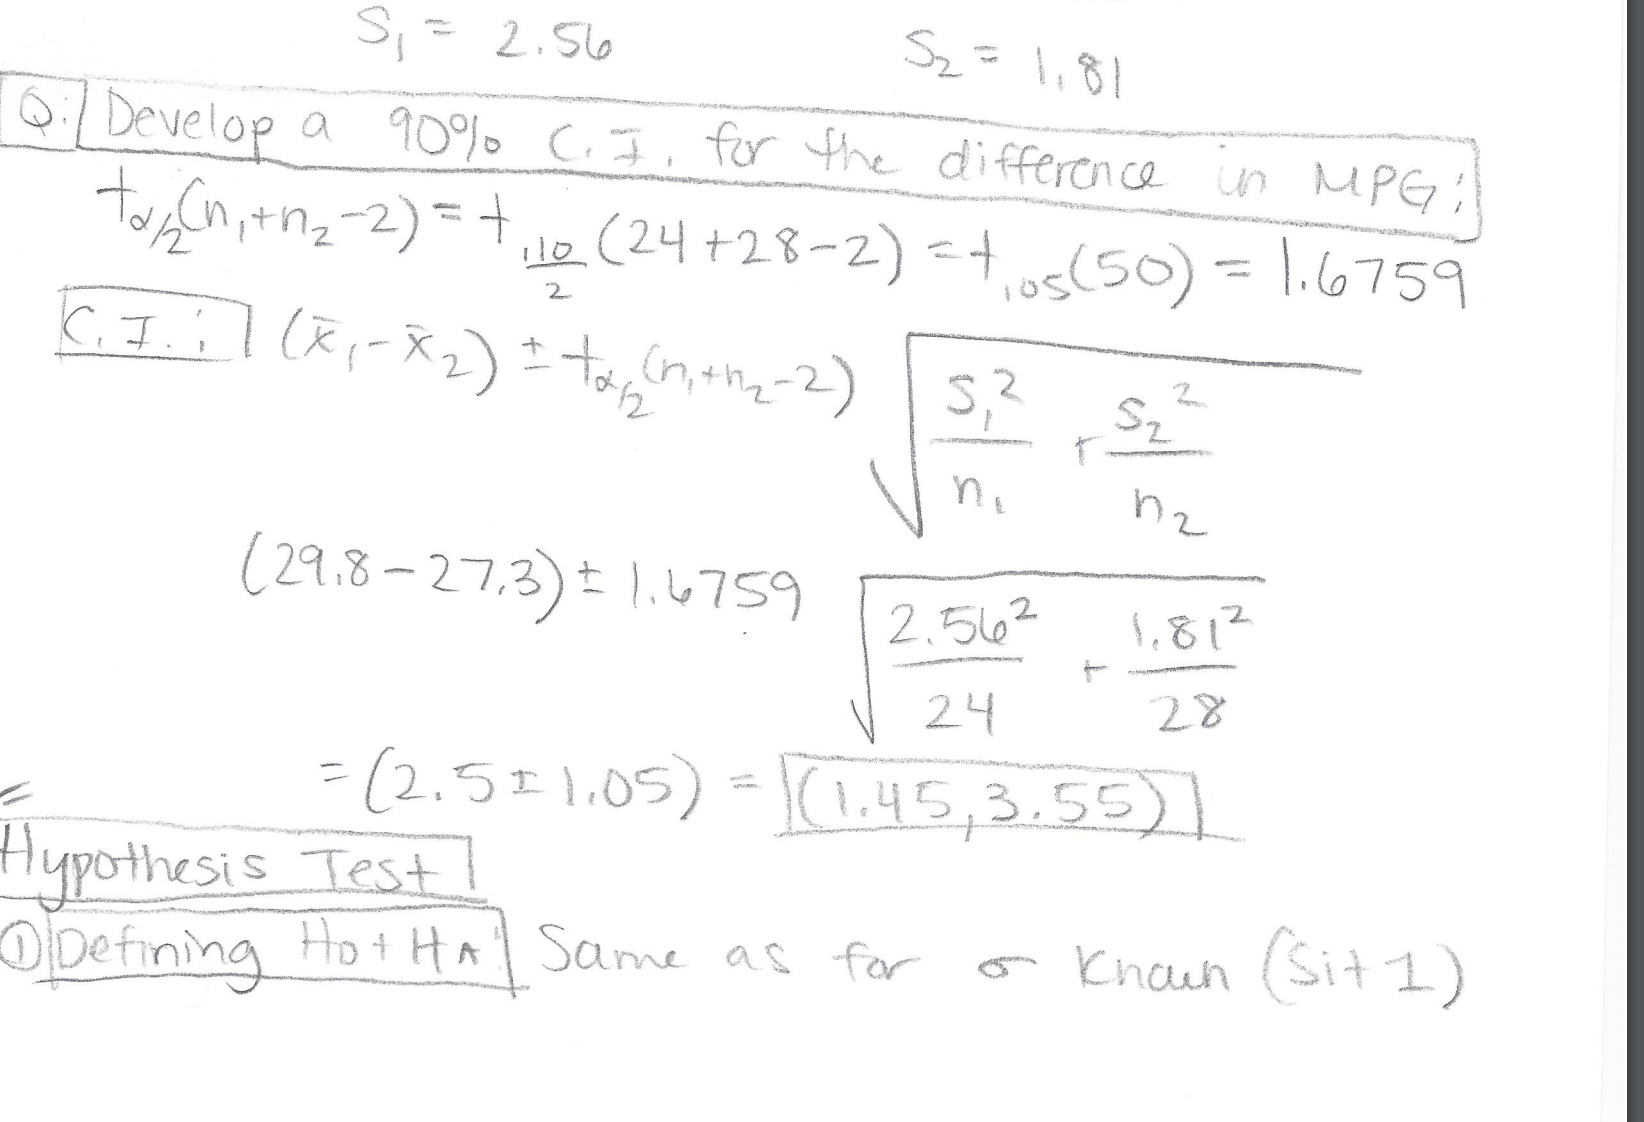 S₁ = 2.56 S₂ = 1.81
Q: Develop a 90% C.I. for the difference in MPG:
t_α/2(n₁+n₂-2) = t_.10/2 (24+28-2) = t_.05(50) = 1.6759
C.I.: (x̄₁-x̄₂) ± t_α/2(n₁+n₂-2) √(S₁²/n₁ + S₂²/n₂)
(29.8-27.3) ± 1.6759 √(2.56²/24 + 1.81²/28)
= (2.5±1.05) = (1.45,3.55)
Hypothesis Test
① Defining H0 + HA: Same as for σ Known (Sit 1)